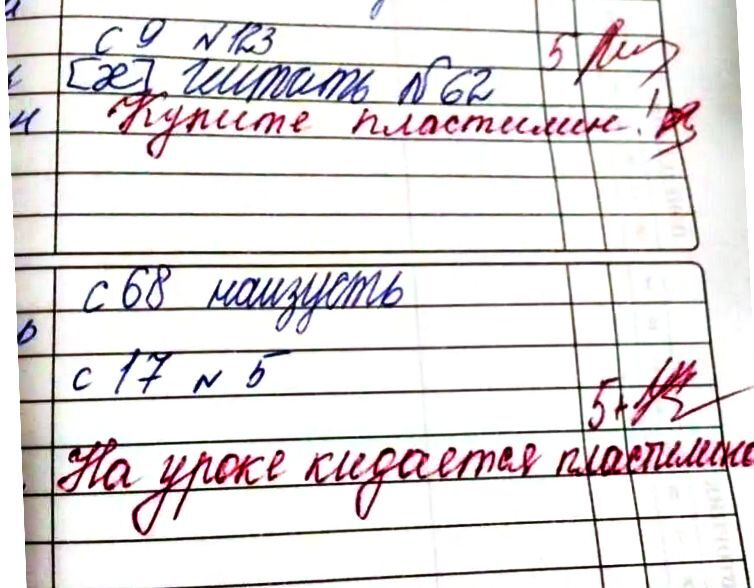 с 9 № 123
5
[ж] читать № 62
Купите пластилин!
с 68 наизусть
с 17 № 5
5+
На уроке кидается пластилино